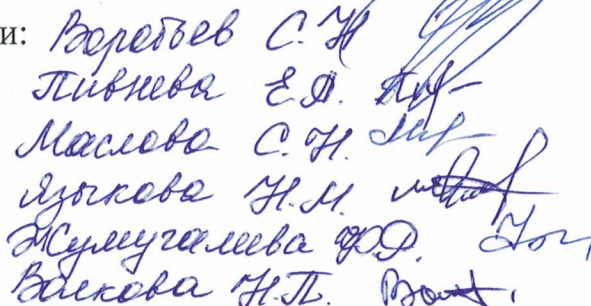 и: Воробьев С. Н
Пивнева Е.А.
Маслова С.Н.
Языкова Н.М.
Жумугалиева Ф.Р.
Волкова Н.П.